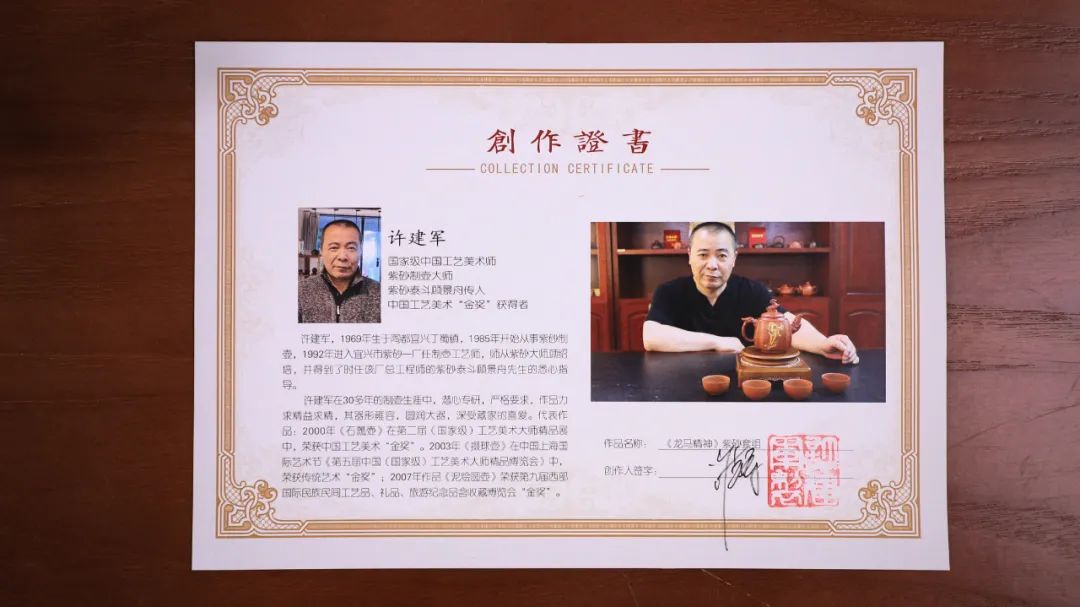 創作證書
COLLECTION CERTIFICATE
许建军
国家级中国工艺美术师
紫砂制壶大师
紫砂泰斗顾景舟传人
中国工艺美术“金奖”获得者
许建军，1969年生于陶都宜兴丁蜀镇，1985年开始从事紫砂制
壶，1992年进入宜兴市紫砂一厂任制壶工艺师，师从紫砂大师顾绍
培，并得到了时任该厂总工程师的紫砂泰斗顾景舟先生的悉心指
导。
许建军在30多年的制壶生涯中，潜心专研，严格要求，作品力
求精益求精，其器形雍容，圆润大器，深受藏家的喜爱。代表作
品：2000年《石瓢壶》在第二届（国家级）工艺美术大师精品展
中，荣获中国工艺美术“金奖”。2003年《掇球壶》在中国上海国
际艺术节《第五届中国（国家级）工艺美术大师精品博览会》中，
荣获传统艺术“金奖”；2007年作品《泥绘圆壶》荣获第九届西部
国际民族民间工艺品、礼品、旅游纪念品暨收藏博览会“金奖”。
作品名称： 《龙马精神》紫砂套组
创作人签字：